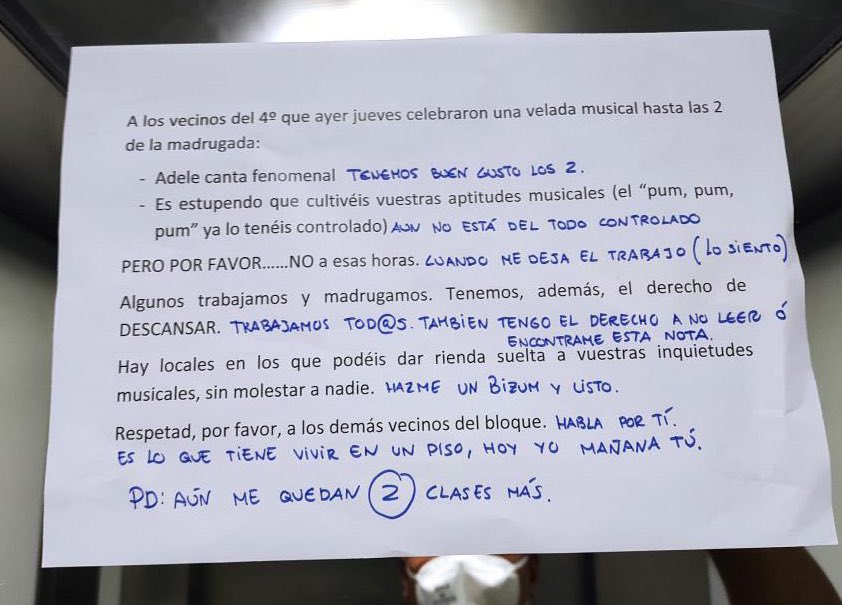 A los vecinos del 4º que ayer jueves celebraron una velada musical hasta las 2
de la madrugada:
- Adele canta fenomenal TENEMOS BUEN GUSTO LOS 2.
- Es estupendo que cultivéis vuestras aptitudes musicales (el “pum, pum,
pum” ya lo tenéis controlado) AUN NO ESTÁ DEL TODO CONTROLADO
PERO POR FAVOR......NO a esas horas. CUANDO ME DEJA EL TRABAJO (LO SIENTO)
Algunos trabajamos y madrugamos. Tenemos, además, el derecho de
DESCANSAR. TRABAJAMOS TOD@S. TAMBIEN TENGO EL DERECHO A NO LEER Ó
ENCONTRAME ESTA NOTA.
Hay locales en los que podéis dar rienda suelta a vuestras inquietudes
musicales, sin molestar a nadie. HAZME UN BIZUM Y LISTO.
Respetad, por favor, a los demás vecinos del bloque. HABLA POR TÍ.
ES LO QUE TIENE VIVIR EN UN PISO, HOY YO MAÑANA TÚ.
PD: AÚN ME QUEDAN 2 CLASES MÁS.